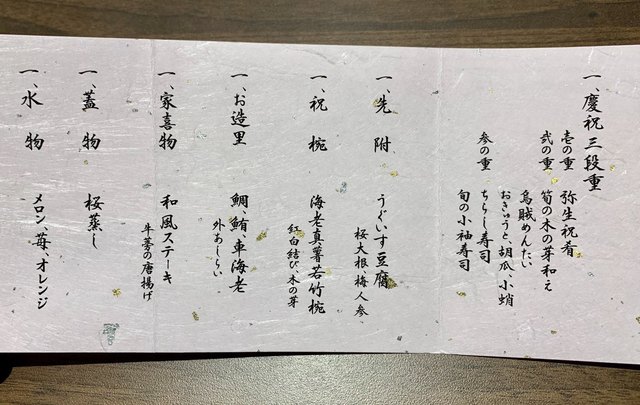 一、慶祝三段重
壱の重 弥生祝肴
弐の重 筍の木の芽和え
烏賊めんたい
おきゅうと、胡瓜、小蛸
参の重 ちらし寿司
旬の小袖寿司
一、先附 うぐいす豆腐
桜大根、梅人参、
一、祝椀 海老真薯若竹椀
紅白結び、木の芽
一、お造里 鯛、鮪、車海老
外あしらい、
一、家喜物 和風ステーキ
牛蒡の唐揚げ
一、蓋物 桜蒸し
一、水物 メロン、苺、オレンジ